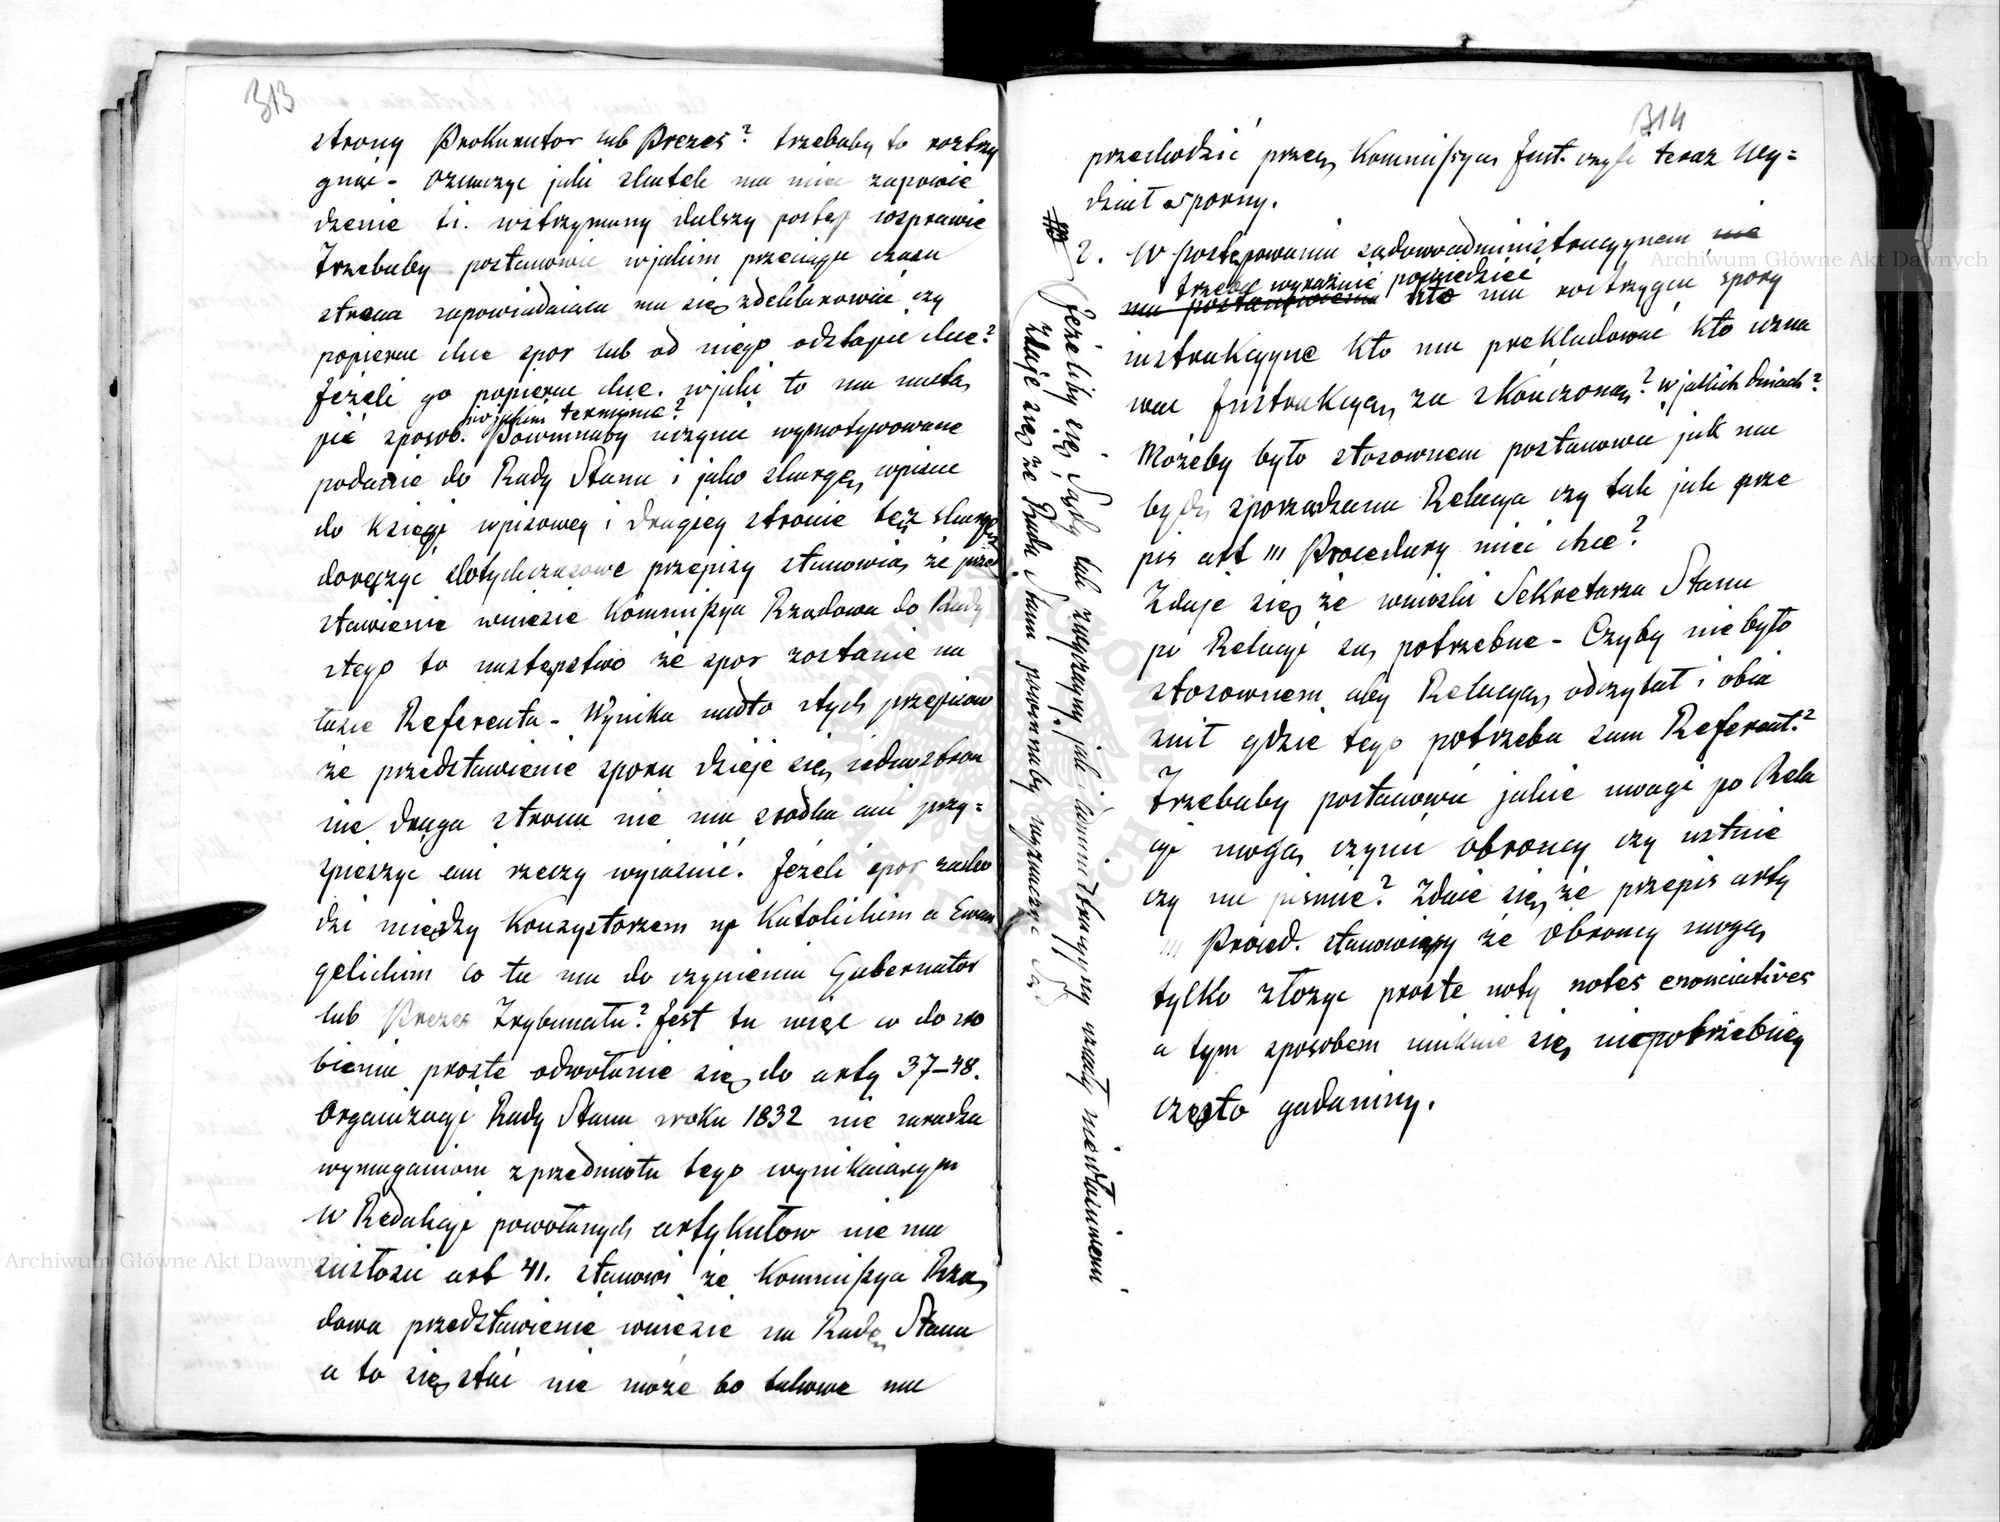 313
strony Prokurator lub Prezes? trzebaby to roztrzy
gnąć - oznaczyć jaki skutek ma mieć zapowie
dzenie ti. wstrzymany dalszy postęp rosprawie
Trzebaby postanowić w jakim przeciągu czasu
strona zapowiadaiąca ma się zdeklarować czy
popierać chce spor lub od niego odstąpić chce?
Jeżeli go popierać chce. w jaki to ma nastą
w jakim terminie?
pić sposob. Powinnaby uczynić wymotywowane
podanie do Rady Stanu i jako skargę wpisać
do Księgi wpisowey i drugiey stronie też skargę
doręczyć dotychczasowe przepisy stanowią że przed
stawienie wniesie Kommissya Rządowa do Rady
stego to następstwo że spor zostanie na
łasce Referenta - Wynika nadto stych przepisow
że przedstawienie sporu dzieje się iednostron
nie druga strona nie ma srodka ani przy=
śpieszyć ani rzeczy wyiasnić. Jeżeli spor zacho
dzi między Konsystorzem np Katolickim a Ewan
gelickim co tu ma do czynienia Gubernator
lub Prezes Trybunału? Jest tu więc co do zro
bienia proste odwołanie się do arty 37-48.
Organizacyi Rady Stanu zroku 1832 nie zaradza
wymaganiom z przedmiotu tego wynikaiącym
W Redakcyi powołanych artykułow nie ma
scisłosci art 41. stanowi że Kommissya Rzą
dowa przedstawienie wniesie na Radę Stanu
a to się stać nie może bo takowe ma
314
przechodzić przez Kommissyą Inst. czyli teraz Wy=
dział sporny.
2. W postępowaniu sądowoadministracyynem nie
trzeba wyraźnie powiedzieć
ma postanowienia kto ma rostrzygać spory
instrukcyyne kto ma prekludować kto uzna
wać Instrukcyą za skończoną? w jakich dniach?
Możeby było stosownem postanowić jak ma
bydź sporządzana Relacya czy tak jak prze
pis art 111 Procedury mieć chce?
Zdaje się że wnioski Sekretarza Stanu
po Relacyi są potrzebne - Czyby nie było
stosownem aby Relacyą odczytał i obia
snił gdzie tego potrzeba sam Referent?
Trzebaby postanowić jakie uwagi po Rela
cyi mogą czynić obroncy czy ustnie
czy na pismie? Zdaie się że przepis arty
111 Proced. stanowiący że Obroncy mogą
tylko złożyć proste noty notes enonciatives
a tym sposobem uniknie się niepotrzebney
często gadaniny.
Jeżeliby się Sądy tak zwyczayny jak i administracyyny uznały niewłasciwemi
zdaje się że Rada Stanu powinnaby wyznaczyć Sąd